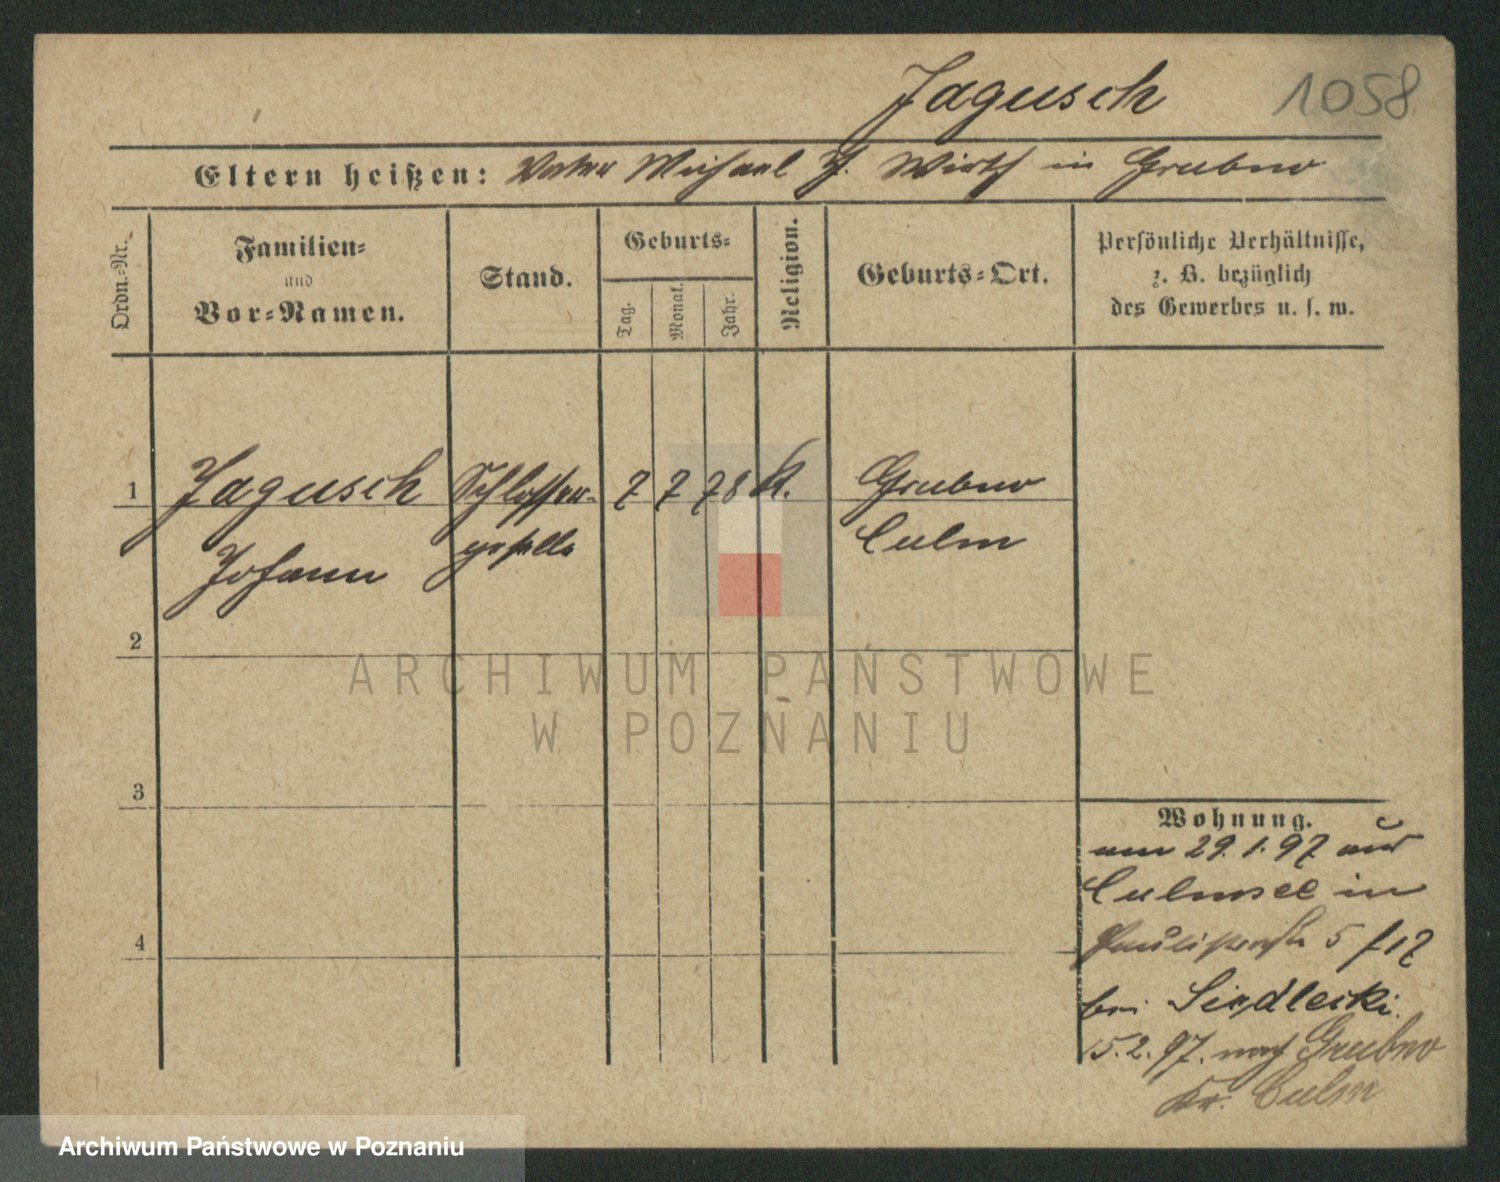 Jagusch
1058
Eltern heißen: Vater Michael J. Wirth in Grubno
Ordn.-Nr.
Familien-
und
Vor-Namen.
Stand.
Geburts-
Tag.
Monat.
Jahr.
Religion.
Geburts-Ort.
Persönliche Verhältnisse,
z. B. bezüglich
des Gewerbes u. s. w.
1
Jagusch Schlosser- 7 7 78 k. Grubno
Johann geselle Culm
2
ARCHIWUM PAŃSTWOWE
W POZNANIU
3
Wohnung.
am 29.1.97 aus
Culmsee in
5
4
bei Siedlecki.
15.2.97. nach Grubno
Kr. Culm
Archiwum Państwowe w Poznaniu